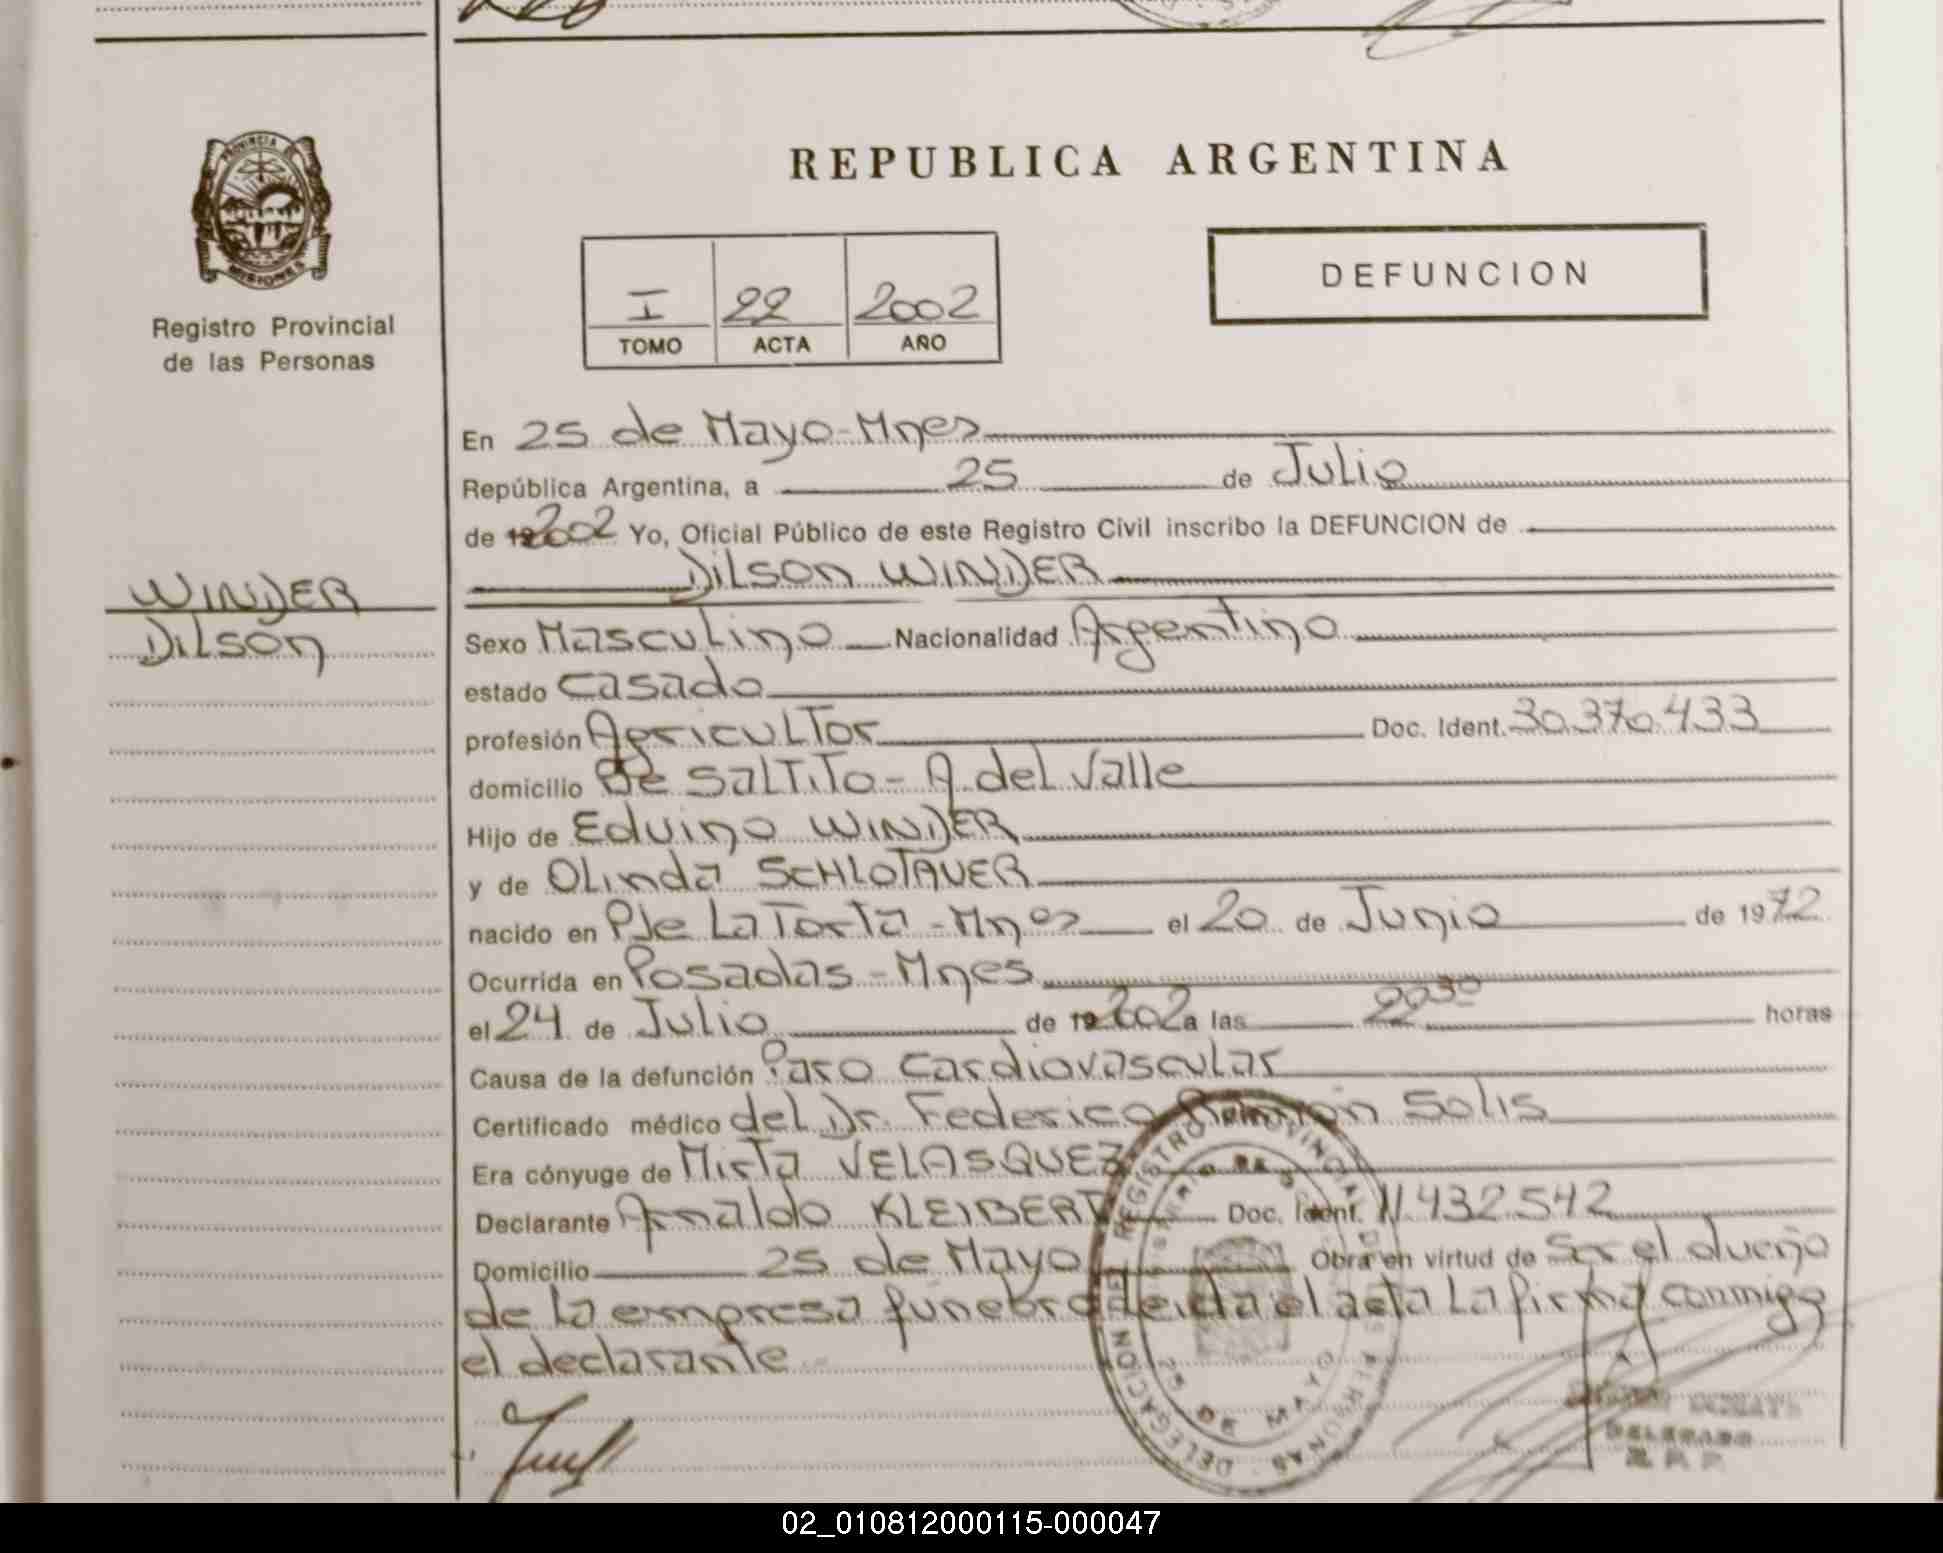 PROVINCIA DE
MISIONES
Registro Provincial
de las Personas
WINDER
Dilson
REPUBLICA ARGENTINA
I 22 2002
TOMO ACTA AÑO
DEFUNCION
En 25 de Mayo-Mnes
República Argentina, a 25 de Julio
de 2002 Yo, Oficial Público de este Registro Civil inscribo la DEFUNCION de
Dilson WINDER
Sexo Masculino Nacionalidad Argentino
estado Casado
profesión Agricultor Doc. Ident. 30.370.433
domicilio Bº Saltito - A. del Valle
Hijo de Eduino WINDER
y de Olinda SCHLOTAUER
nacido en Pje La Torta - Mnes el 20 de Junio de 1972
Ocurrida en Posadas - Mnes
el 24 de Julio de 2002 a las 22 30 horas
Causa de la defunción Paro Cardiovascular
Certificado médico del Dr. Federico Ramón Solis
Era cónyuge de Mirta VELASQUEZ
Declarante Arnaldo KLEIBERT Doc. Ident. 11.432.542
Domicilio 25 de Mayo Obra en virtud de Ser el dueño
de la empresa funebre leida el acta La firma conmigo
el declarante
DELEGACION DEL REGISTRO PROVINCIAL DE LAS PERSONAS
25 DE MAYO
DELEGADO
R. P. P.
02_010812000115-000047